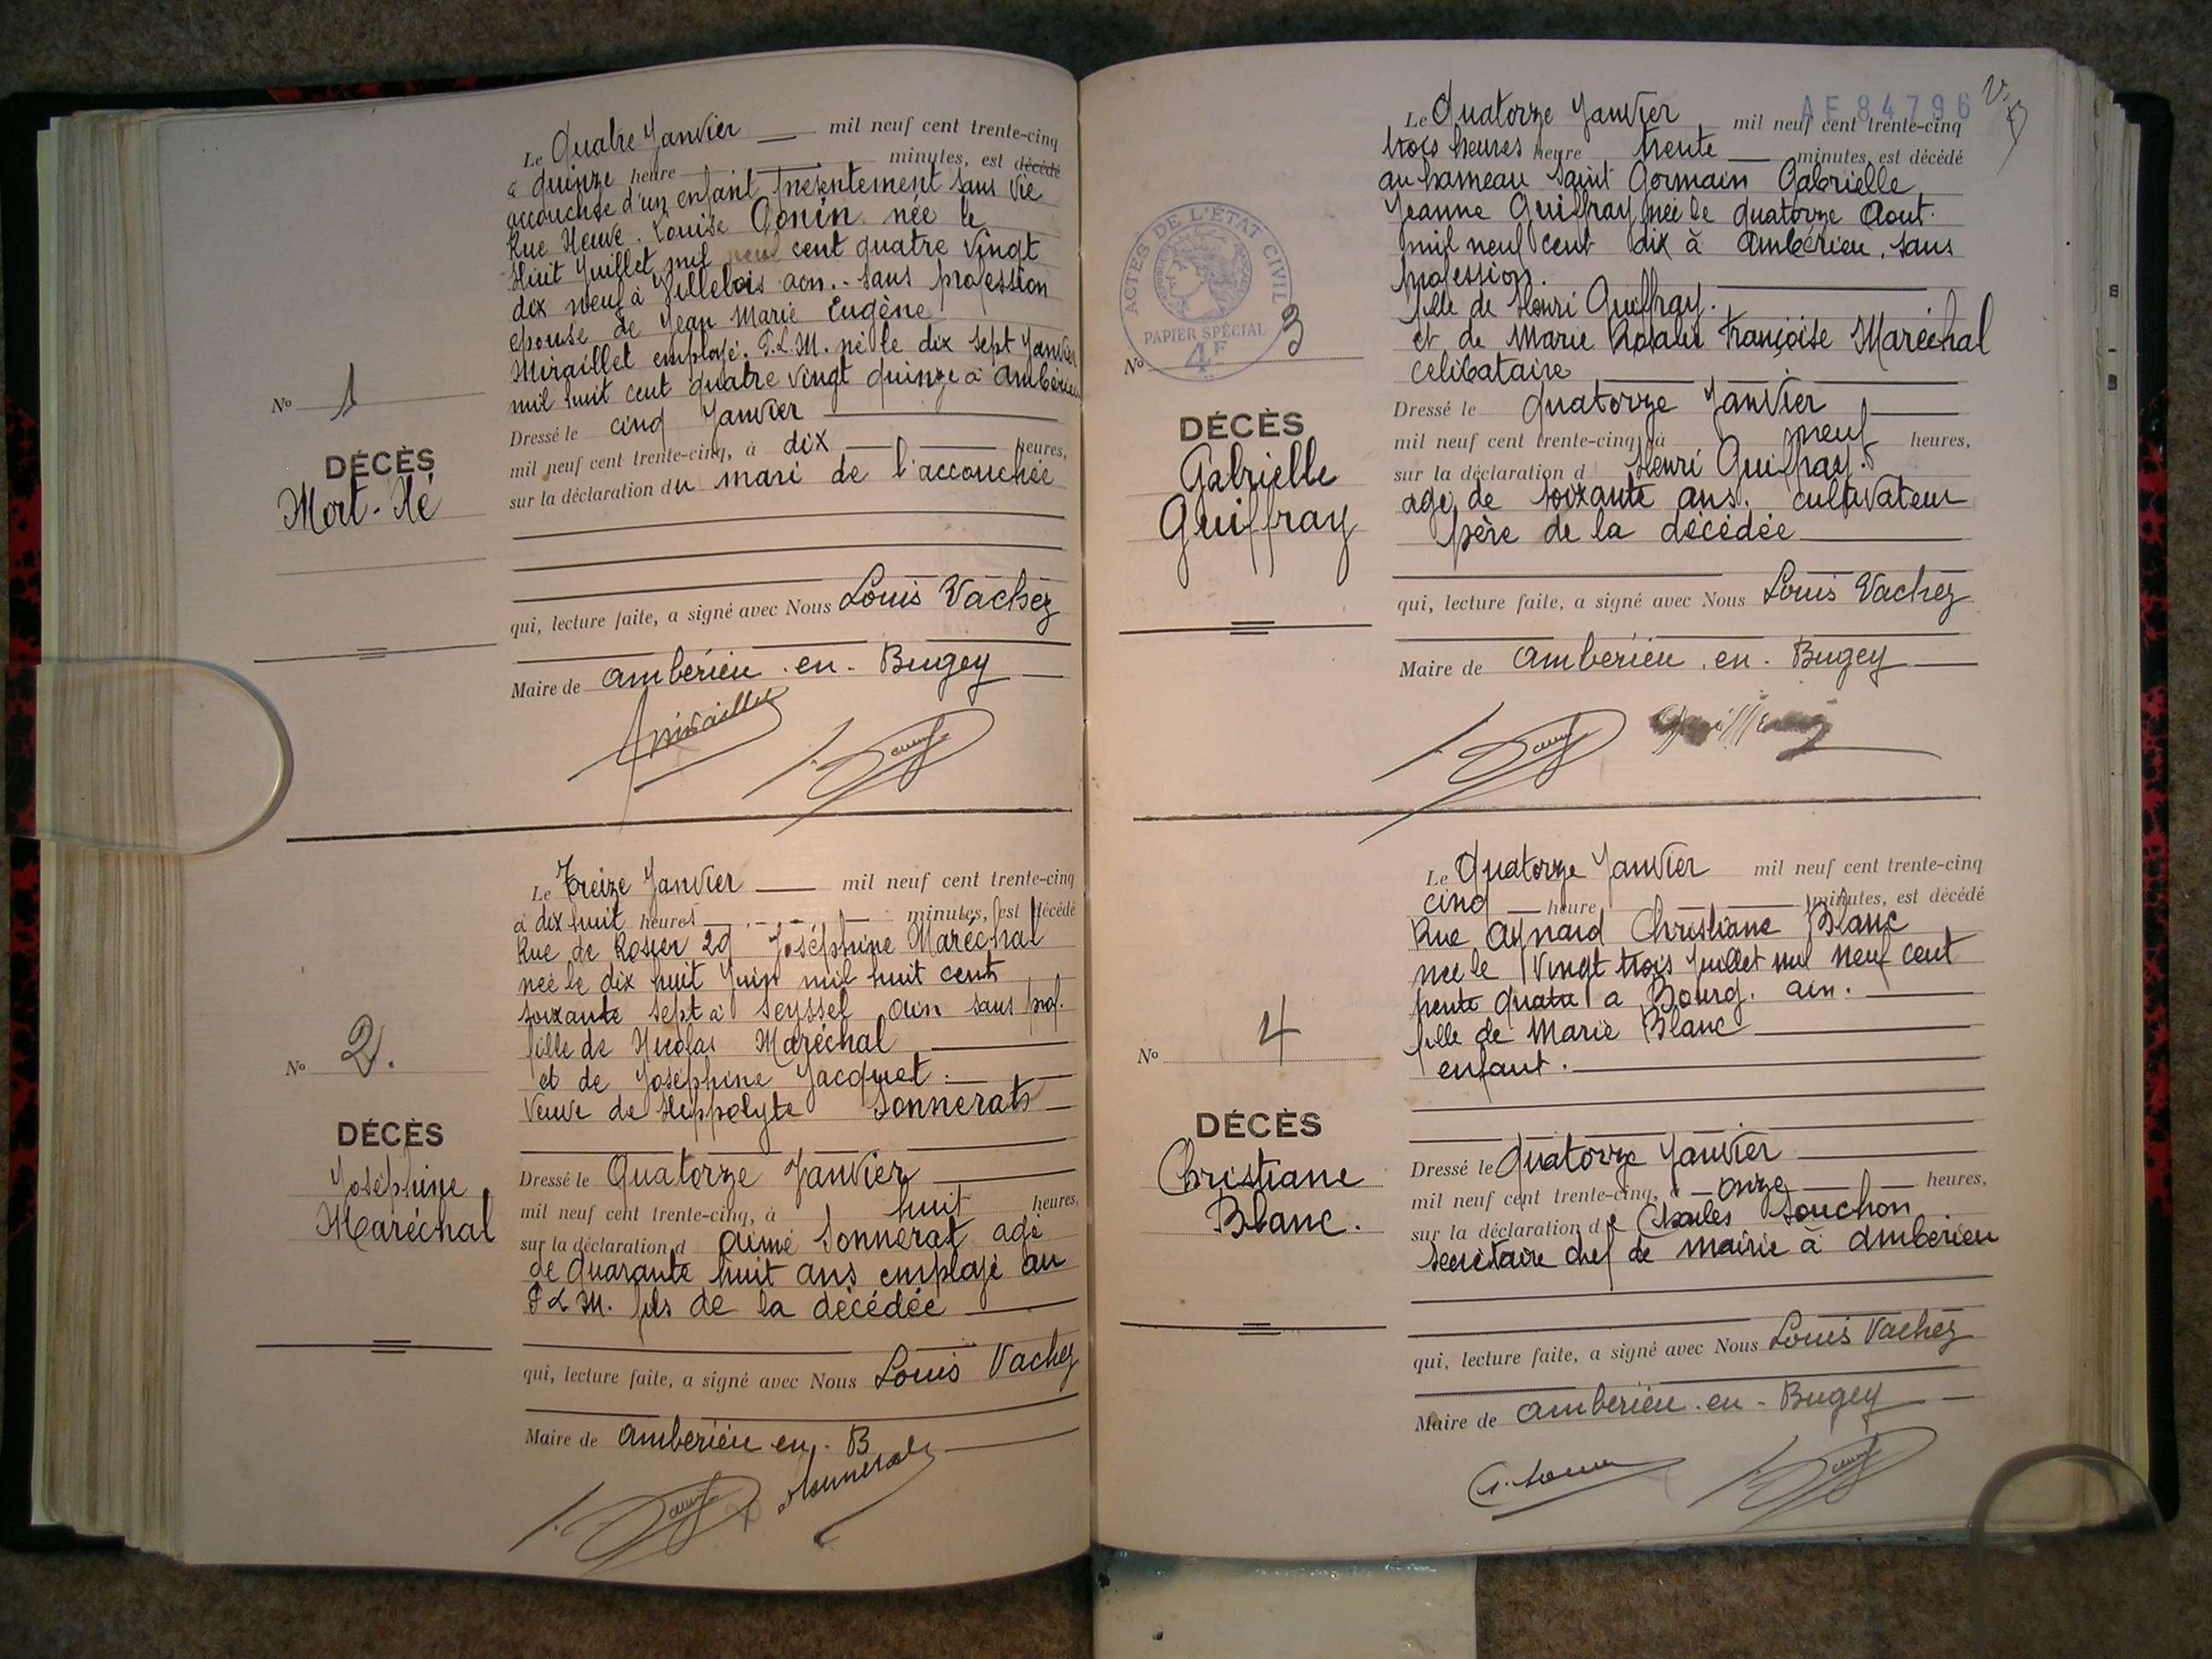 Le Quatre Janvier mil neuf cent trente-cinq
à quinze heure minutes, est décédé
accouchée d'un enfant présentement sans vie
Rue Neuve. Louise Conin née le
Huit Juillet mil cent quatre vingt
dix neuf à Villebois ain.. sans profession
épouse de Jean Marie Eugène
Miraillet employé. P.L.M. né le dix sept Janvier
mil huit cent quatre vingt quinze à Ambérieu
Dressé le cinq Janvier
mil neuf cent trente-cinq, à dix heures,
sur la déclaration du mari de l'accouchée
qui, lecture faite, a signé avec Nous Louis Vachez
Maire de Ambérieu. en. Bugey
Miraillet
No 1
DÉCÈS
Mort-Né
Le Treize Janvier mil neuf cent trente-cinq
à dix huit heures minutes, est décédé
Rue de Rosier 29 Joséphine Maréchal
née le dix huit Juin mil huit cent
soixante sept à Seyssel Ain sans prof.
fille de Nicolas Maréchal
et de Joséphine Jacquet.
Veuve de Hippolyte Sonnerat
Dressé le Quatorze Janvier
mil neuf cent trente-cinq, à huit heures,
sur la déclaration d Aimé Sonnerat agé
de quarante huit ans employé au
P L M. fils de la décédée
qui, lecture faite, a signé avec Nous Louis Vachez
Maire de Ambérieu en. B
Sonnerat
No 2.
DÉCÈS
Joséphine
Maréchal
AE 84796
Le Quatorze Janvier mil neuf cent trente-cinq
trois heures heure trente minutes, est décédé
au hameau Saint Germain Gabrielle
Jeanne Guiffray née le quatorze Aout.
mil neuf cent dix à Ambérieu. sans
profession.
fille de Henri Guiffray.
et de Marie Rosalie Françoise Maréchal
celibataire
Dressé le quatorze Janvier
mil neuf cent trente-cinq, à neuf heures,
sur la déclaration d Henri Guiffray.
agé de soixante ans. cultivateur
père de la décédée
qui, lecture faite, a signé avec Nous Louis Vachez
Maire de Ambérieu. en. Bugey
ACTES DE L'ÉTAT CIVIL
PAPIER SPÉCIAL
4F
No 3
DÉCÈS
Gabrielle
Guiffray
Le Quatorze Janvier mil neuf cent trente-cinq
cinq heure minutes, est décédé
Rue Aynard Christiane Blanc
née le Vingt trois Juillet mil neuf cent
trente quatre à Bourg. ain.
fille de Marie Blanc
enfant.
Dressé le Quatorze Janvier
mil neuf cent trente-cinq, à onze heures,
sur la déclaration de Charles Souchon
Secrétaire chef de mairie à Ambérieu
qui, lecture faite, a signé avec Nous Louis Vachez
Maire de Ambérieu. en - Bugey
No 4
DÉCÈS
Christiane
Blanc.